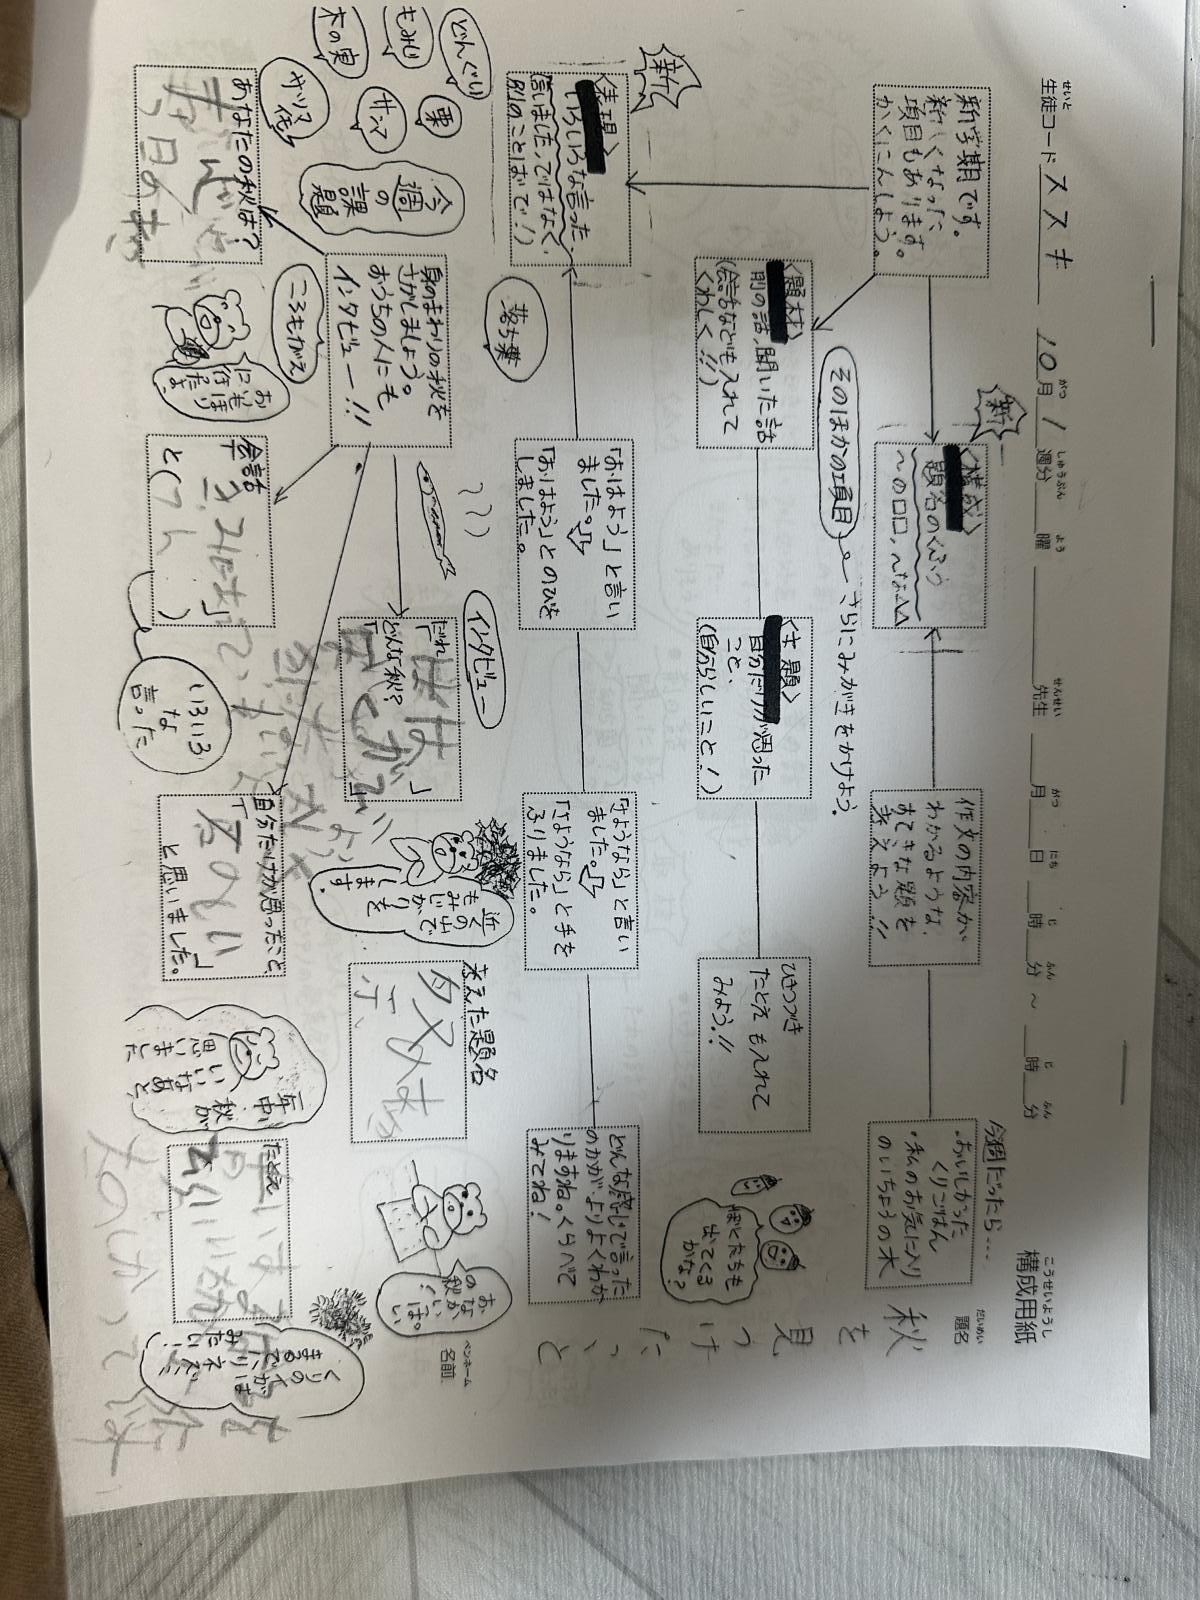 構成用紙
こうせいようし
生徒コード ススキ 10月1週分 曜 先生 月 日 時 分 ~ 時 分
せいと がつ しゅうぶん よう せんせい がつ にち じ ふん じ ふん
題名
だいめい
秋を見つけたっと
名前
ペンネーム
新学期です。
新しくなった
項目もあります。
かくにんしよう。
新
<構成>
題名のくふう
~の口口,~な△△
作文の内容が、
わかるような、
すてきな題を
考えよう!!
今週だったら…
・おいしかった
くりごはん
・私のお気に入り
のいちょうの木
そのほかの項目 さらにみがきをかけよう。
<題材>
前の話,聞いた話
(会話なども入れて
くわしく!!)
<主題>
自分だけが思った
こと、
(自分らしいこと!)
ひきつづき
たとえも入れて
みよう!!
ぼくたちも
出てくる
かな?
新
<表現>
いろいろな言った
言いました,ではなく、
別のことばで!)
「おはよう」と言い
ました。
「おはよう」とのびを
しました。
「さようなら」と言い
ました。
「さようなら」と手を
ふりました。
どんな感じで言った
のかが、よりよくわか
りますね。くらべて
みてね!
どんぐり
もみじ
木の実
栗
サンマ
キンモクセイ
落ち葉
ころもがえ
今週の課題
身のまわりの秋を
さがしましょう。
おうちの人にも
インタビュー!!
インタビュー
だれ
どんな秋?
「 」
近くの山で
もみじがりを
します。
考えた題名
おなか
いっぱい
の秋!
あなたの秋は?
おいもほり
に行ったよ。
会話
「 」
と( )
いろいろ
な
言った
自分だけが思ったこと
「 」
と思いました。
年中
秋が
いいなあと、
思いました
たとえ
くりのイガは
まるでハリネズミ
みたい!